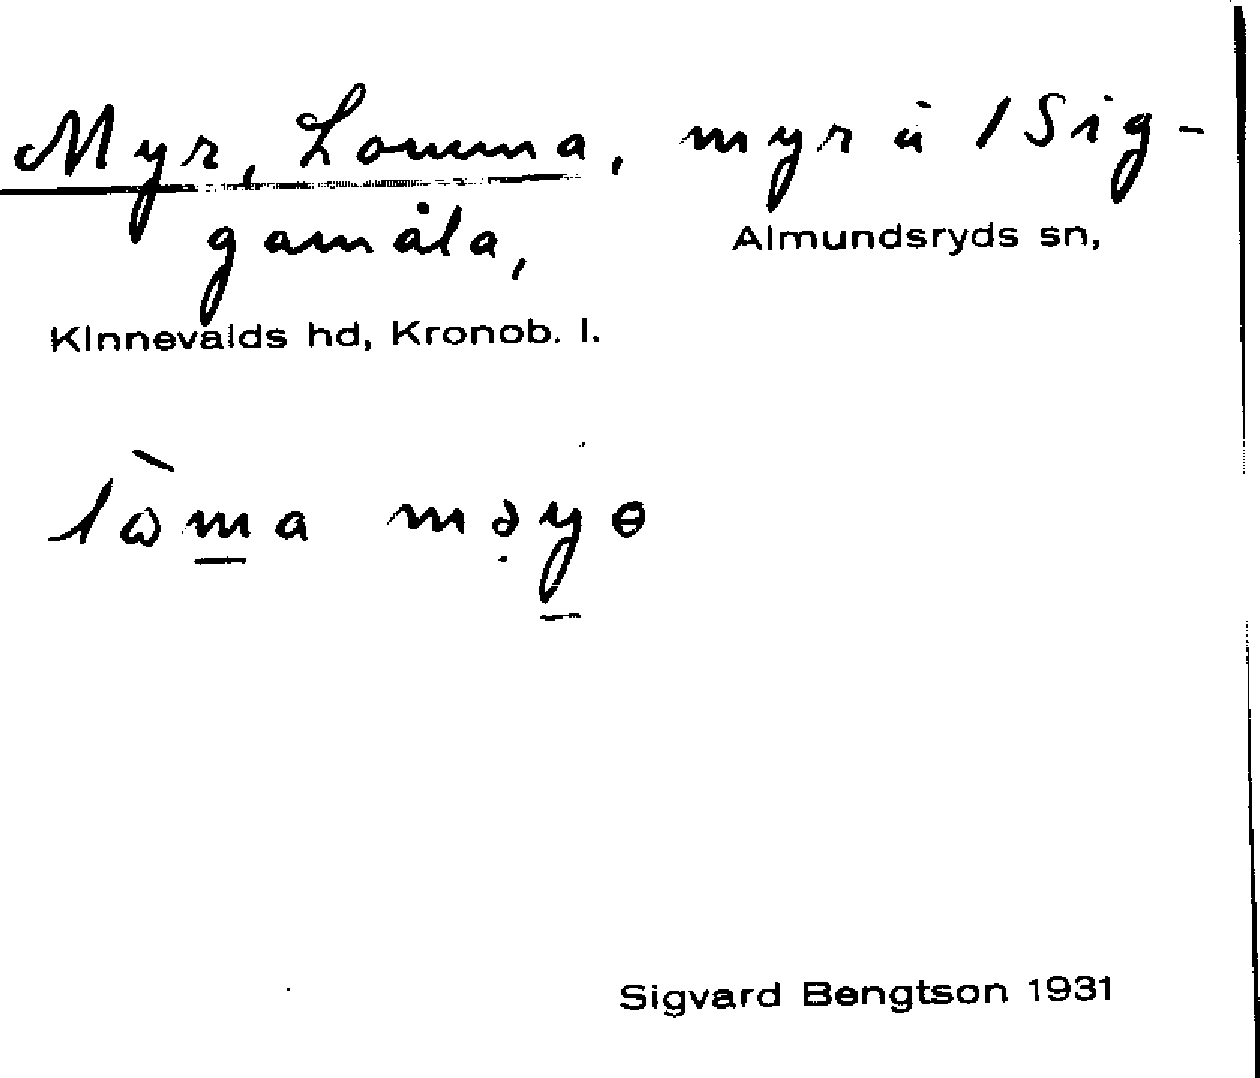 Myr, Lomma, myr ü 1 Sig-
gamåla, Almundsryds sn,
Kinnevalds hd, Kronob. l.
Sigvard Bengtson 1931